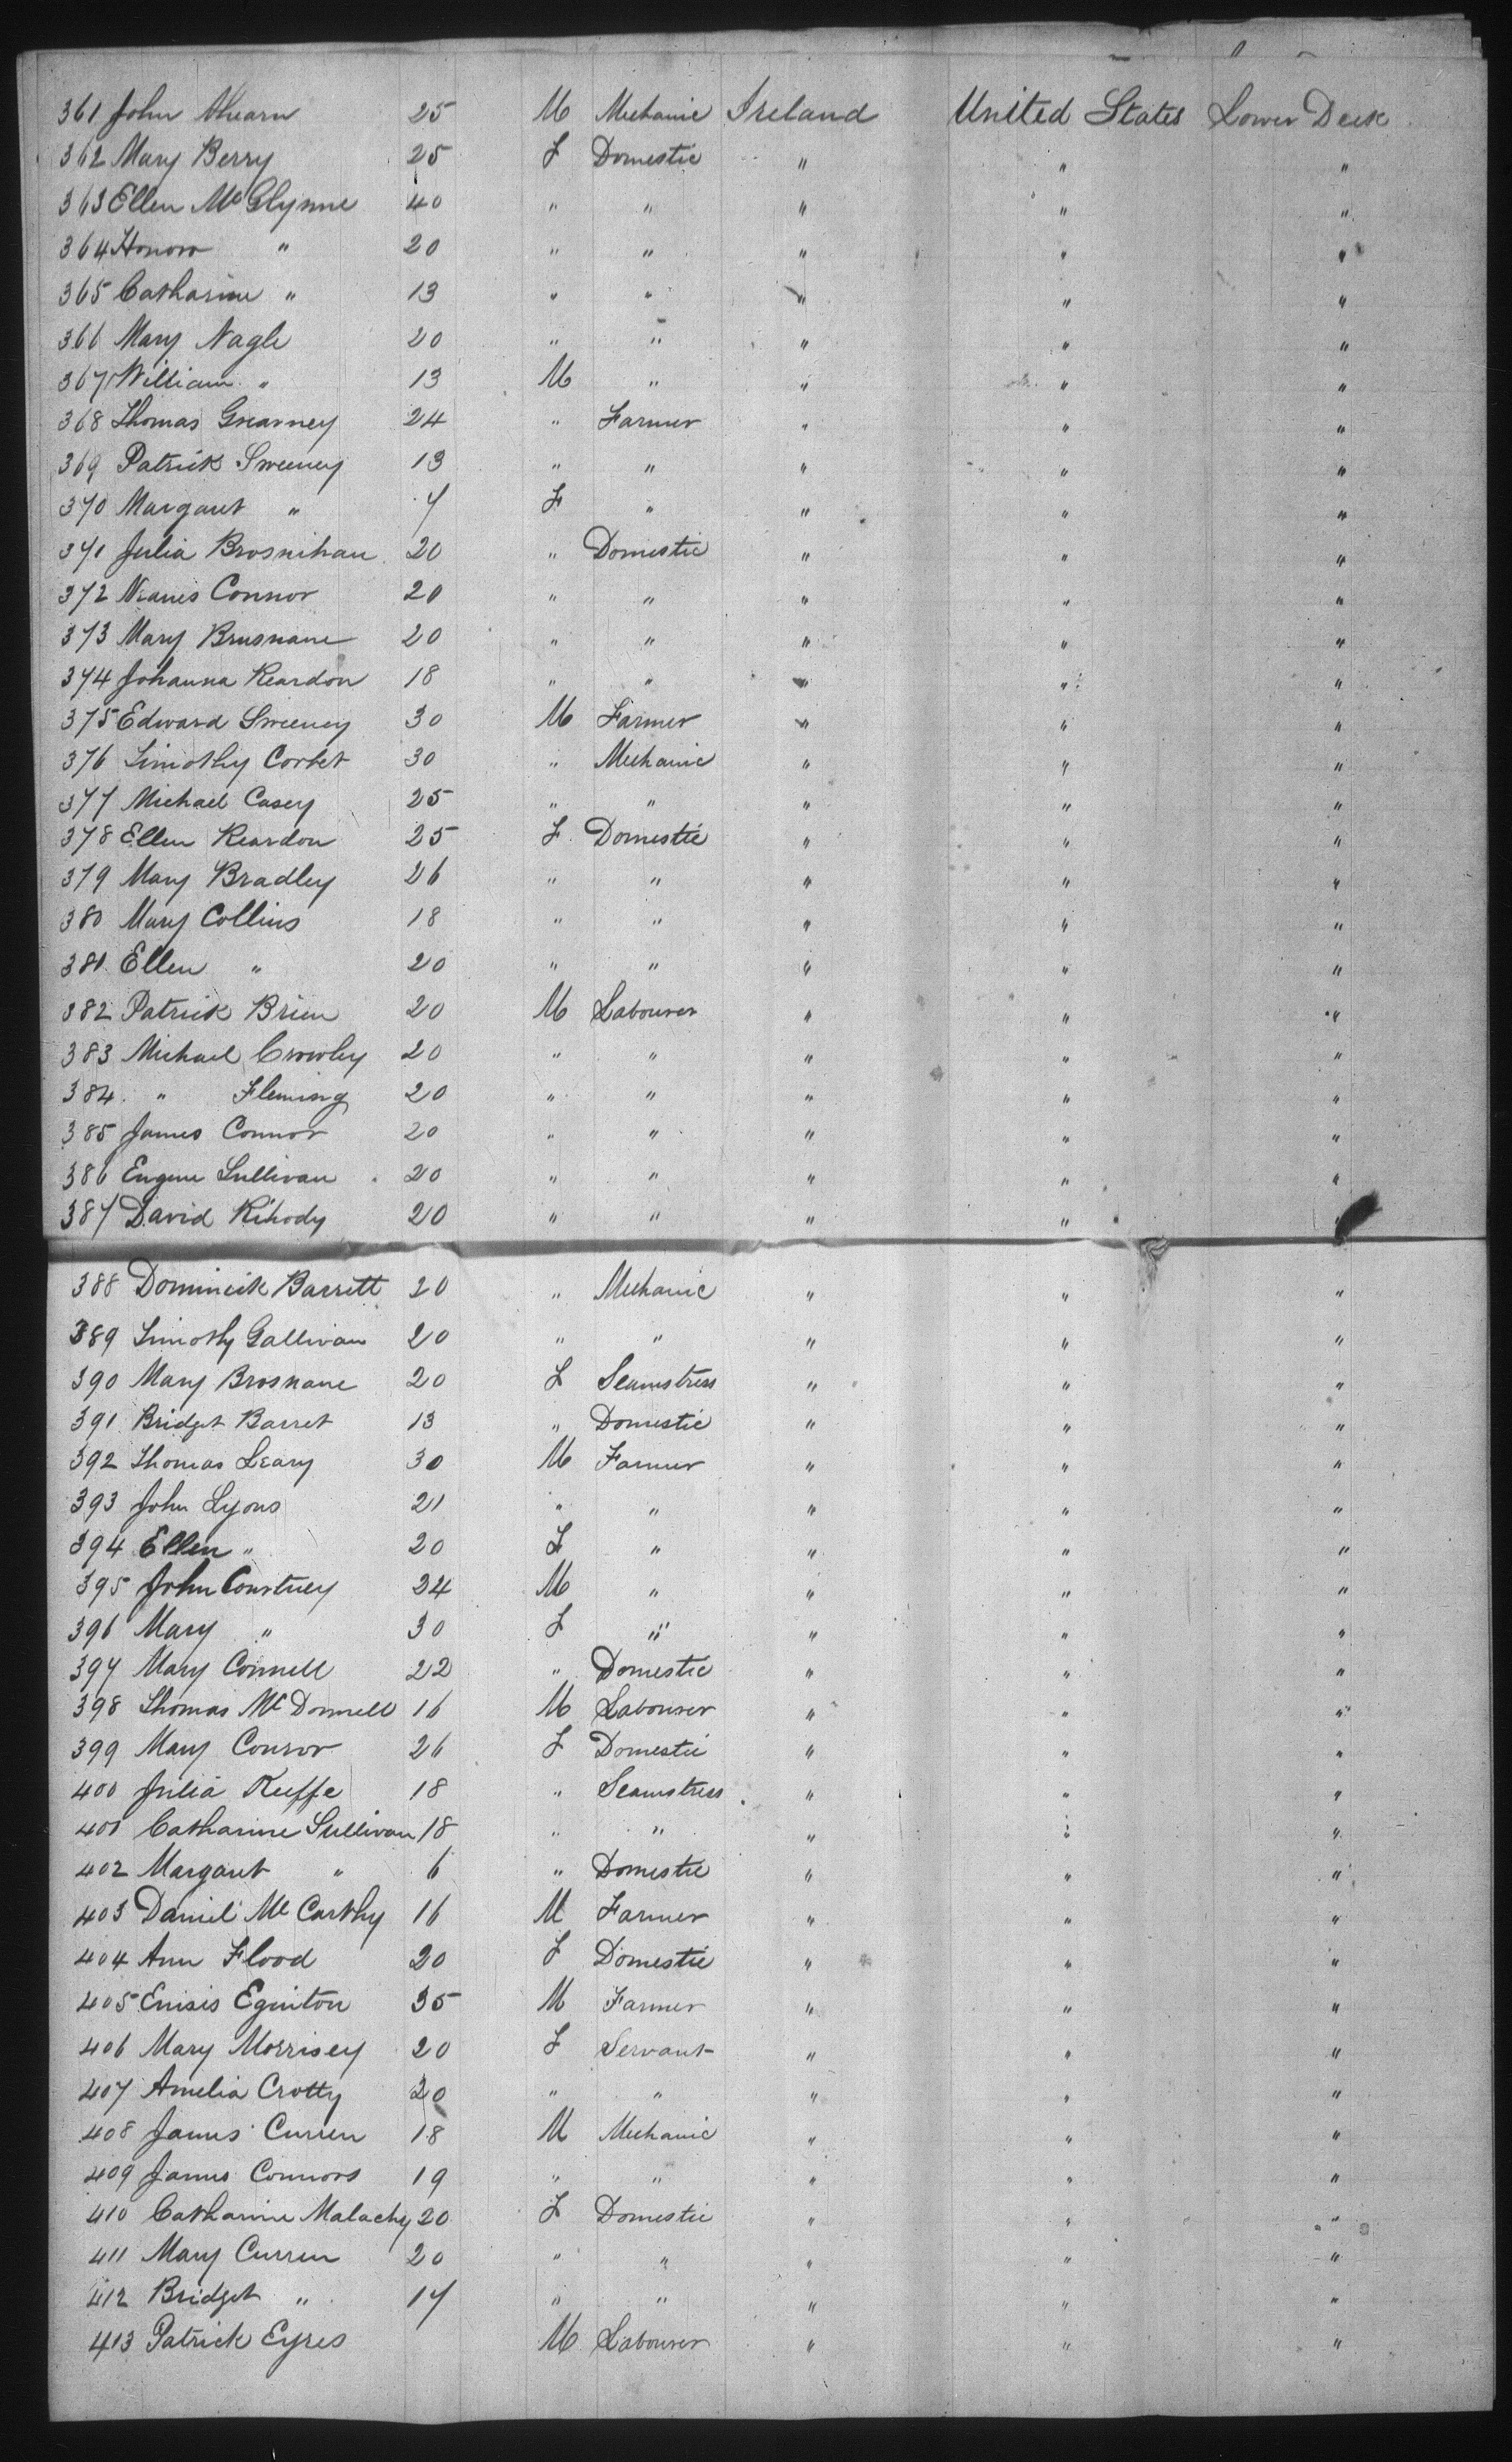 361 John Ahearn 25 M Mechanic Ireland United States Lower Deck
362 Mary Berry 25 F Domestic " " "
363 Ellen McGlynne 40 " " " " "
364 Honora " 20 " " " " "
365 Catharine " 13 " " " " "
366 Mary Nagle 20 " " " " "
367 William " 13 M " " " "
368 Thomas Grearney 24 " Farmer " " "
369 Patrick Sweeney 13 " " " " "
370 Margaret " 7 F " " " "
371 Julia Brosnihan 20 " Domestic " " "
372 Connor 20 " " " " "
373 Mary Brusnane 20 " " " " "
374 Johanna Reardon 18 " " " " "
375 Edward Sweeney 30 M Farmer " " "
376 Timothy Corbet 30 " Mechanic " " "
377 Michael Casey 25 " " " " "
378 Ellen Reardon 25 F Domestic " " "
379 Mary Bradley 26 " " " " "
380 Mary Collins 18 " " " " "
381 Ellen " 20 " " " " "
382 Patrick Brien 20 M Labourer " " "
383 Michael Crowley 20 " " " " "
384 " Fleming 20 " " " " "
385 James Connor 20 " " " " "
386 Eugene Sullivan 20 " " " " "
387 David Kihody 20 " " " " "
388 Dominick Barrett 20 " Mechanic " " "
389 Timothy Gallivan 20 " " " " "
390 Mary Brosnane 20 F Seamstress " " "
391 Bridget Barret 13 " Domestic " " "
392 Thomas Leary 30 M Farmer " " "
393 John Lyons 21 " " " " "
394 Ellen " 20 F " " " "
395 John Courtney 24 M " " " "
396 Mary " 30 F " " " "
397 Mary Connell 22 " Domestic " " "
398 Thomas McDonnell 16 M Labourer " " "
399 Mary Connor 26 F Domestic " " "
400 Julia Keeffe 18 " Seamstress " " "
401 Catharine Sullivan 18 " " " " "
402 Margaret " 6 " Domestic " " "
403 Daniel McCarthy 16 M Farmer " " "
404 Ann Flood 20 F Domestic " " "
405 Eginton 35 M Farmer " " "
406 Mary Morrisey 20 F Servant " " "
407 Amelia Crotty 20 " " " " "
408 James Curren 18 M Mechanic " " "
409 James Connors 19 " " " " "
410 Catharine Malachy 20 F Domestic " " "
411 Mary Curren 20 " " " " "
412 Bridget " 17 " " " " "
413 Patrick Eyres M Labourer " " "